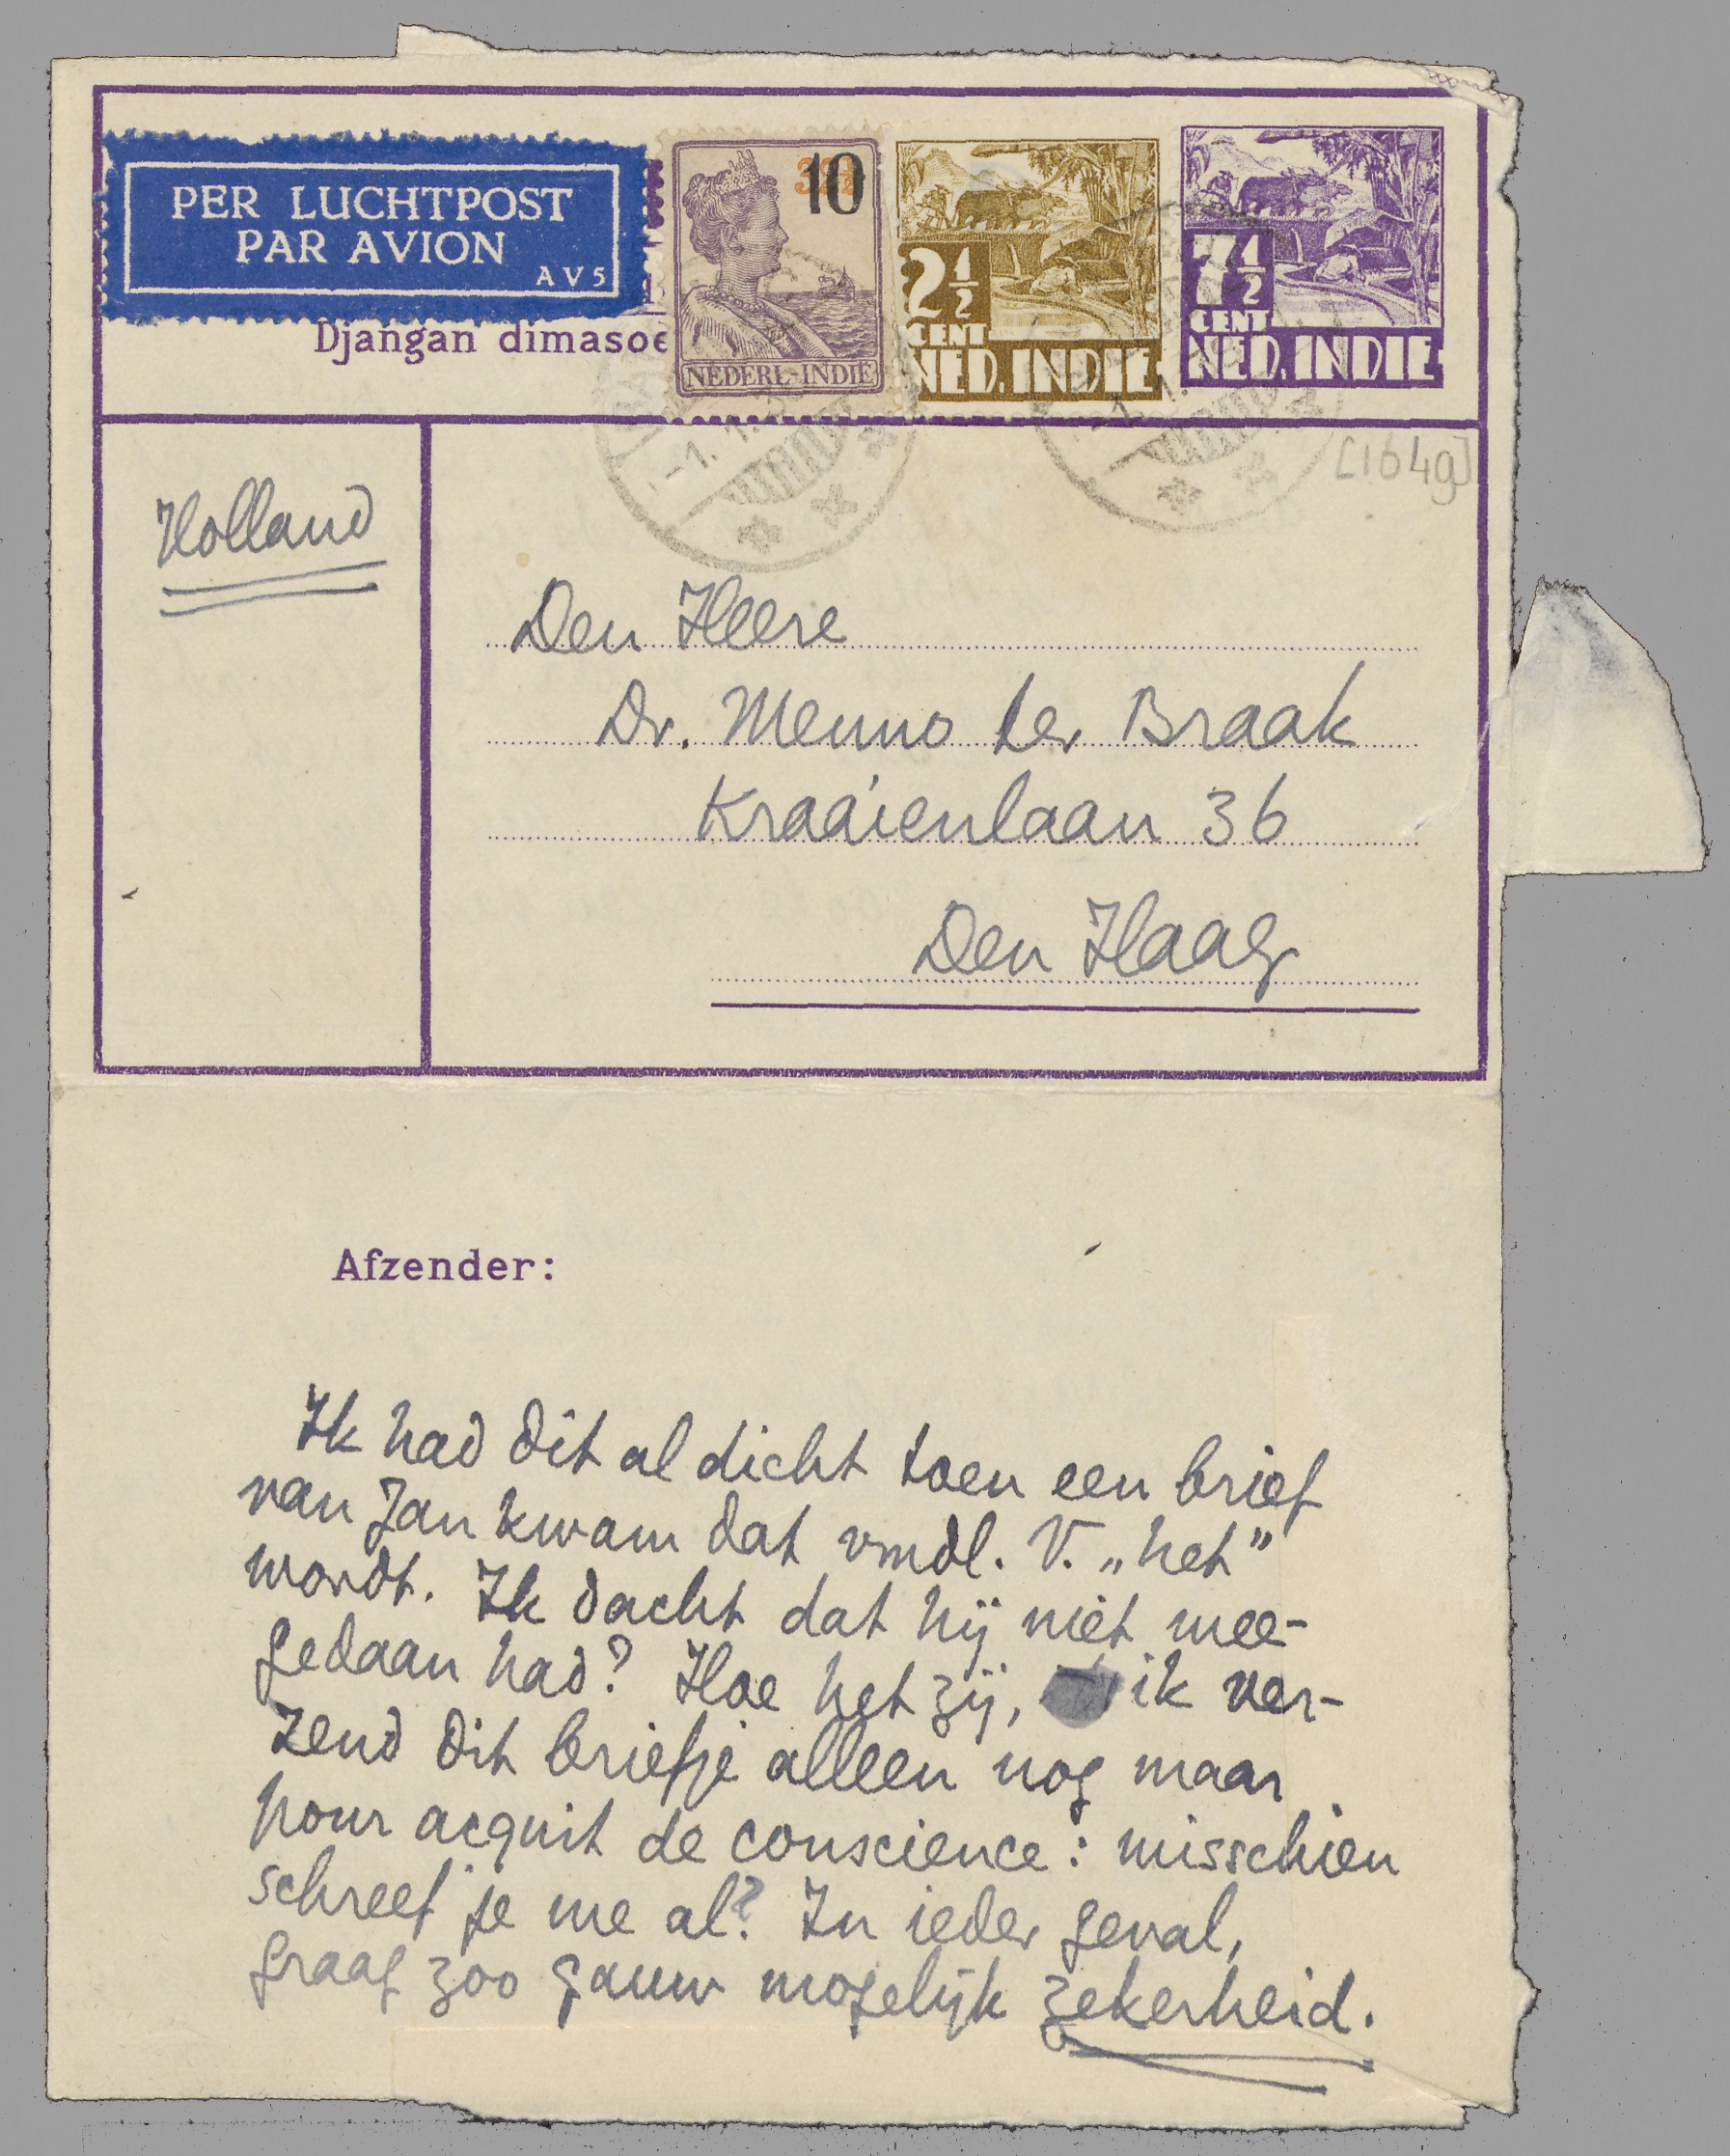 PER LUCHTPOST
PAR AVION
AV5
10
NEDERL-INDIË
2½
CENT
NED. INDIE
7½
CENT
NED. INDIE
Djangan dimasoe
-1.
[164g]
Holland
Den Heere
Dr. Menno ter Braak
Kraaienlaan 36
Den Haag
Afzender:
Ik had dit al dicht toen een brief
van Jan kwam dat vmdl. V. „het”
wordt. Ik dacht dat hij niet mee-
gedaan had? Hoe het zij, ik ver-
zend dit briefje alleen nog maar
pour acquit de conscience: misschien
schreef je me al? In ieder geval,
graag zoo gauw mogelijk zekerheid.